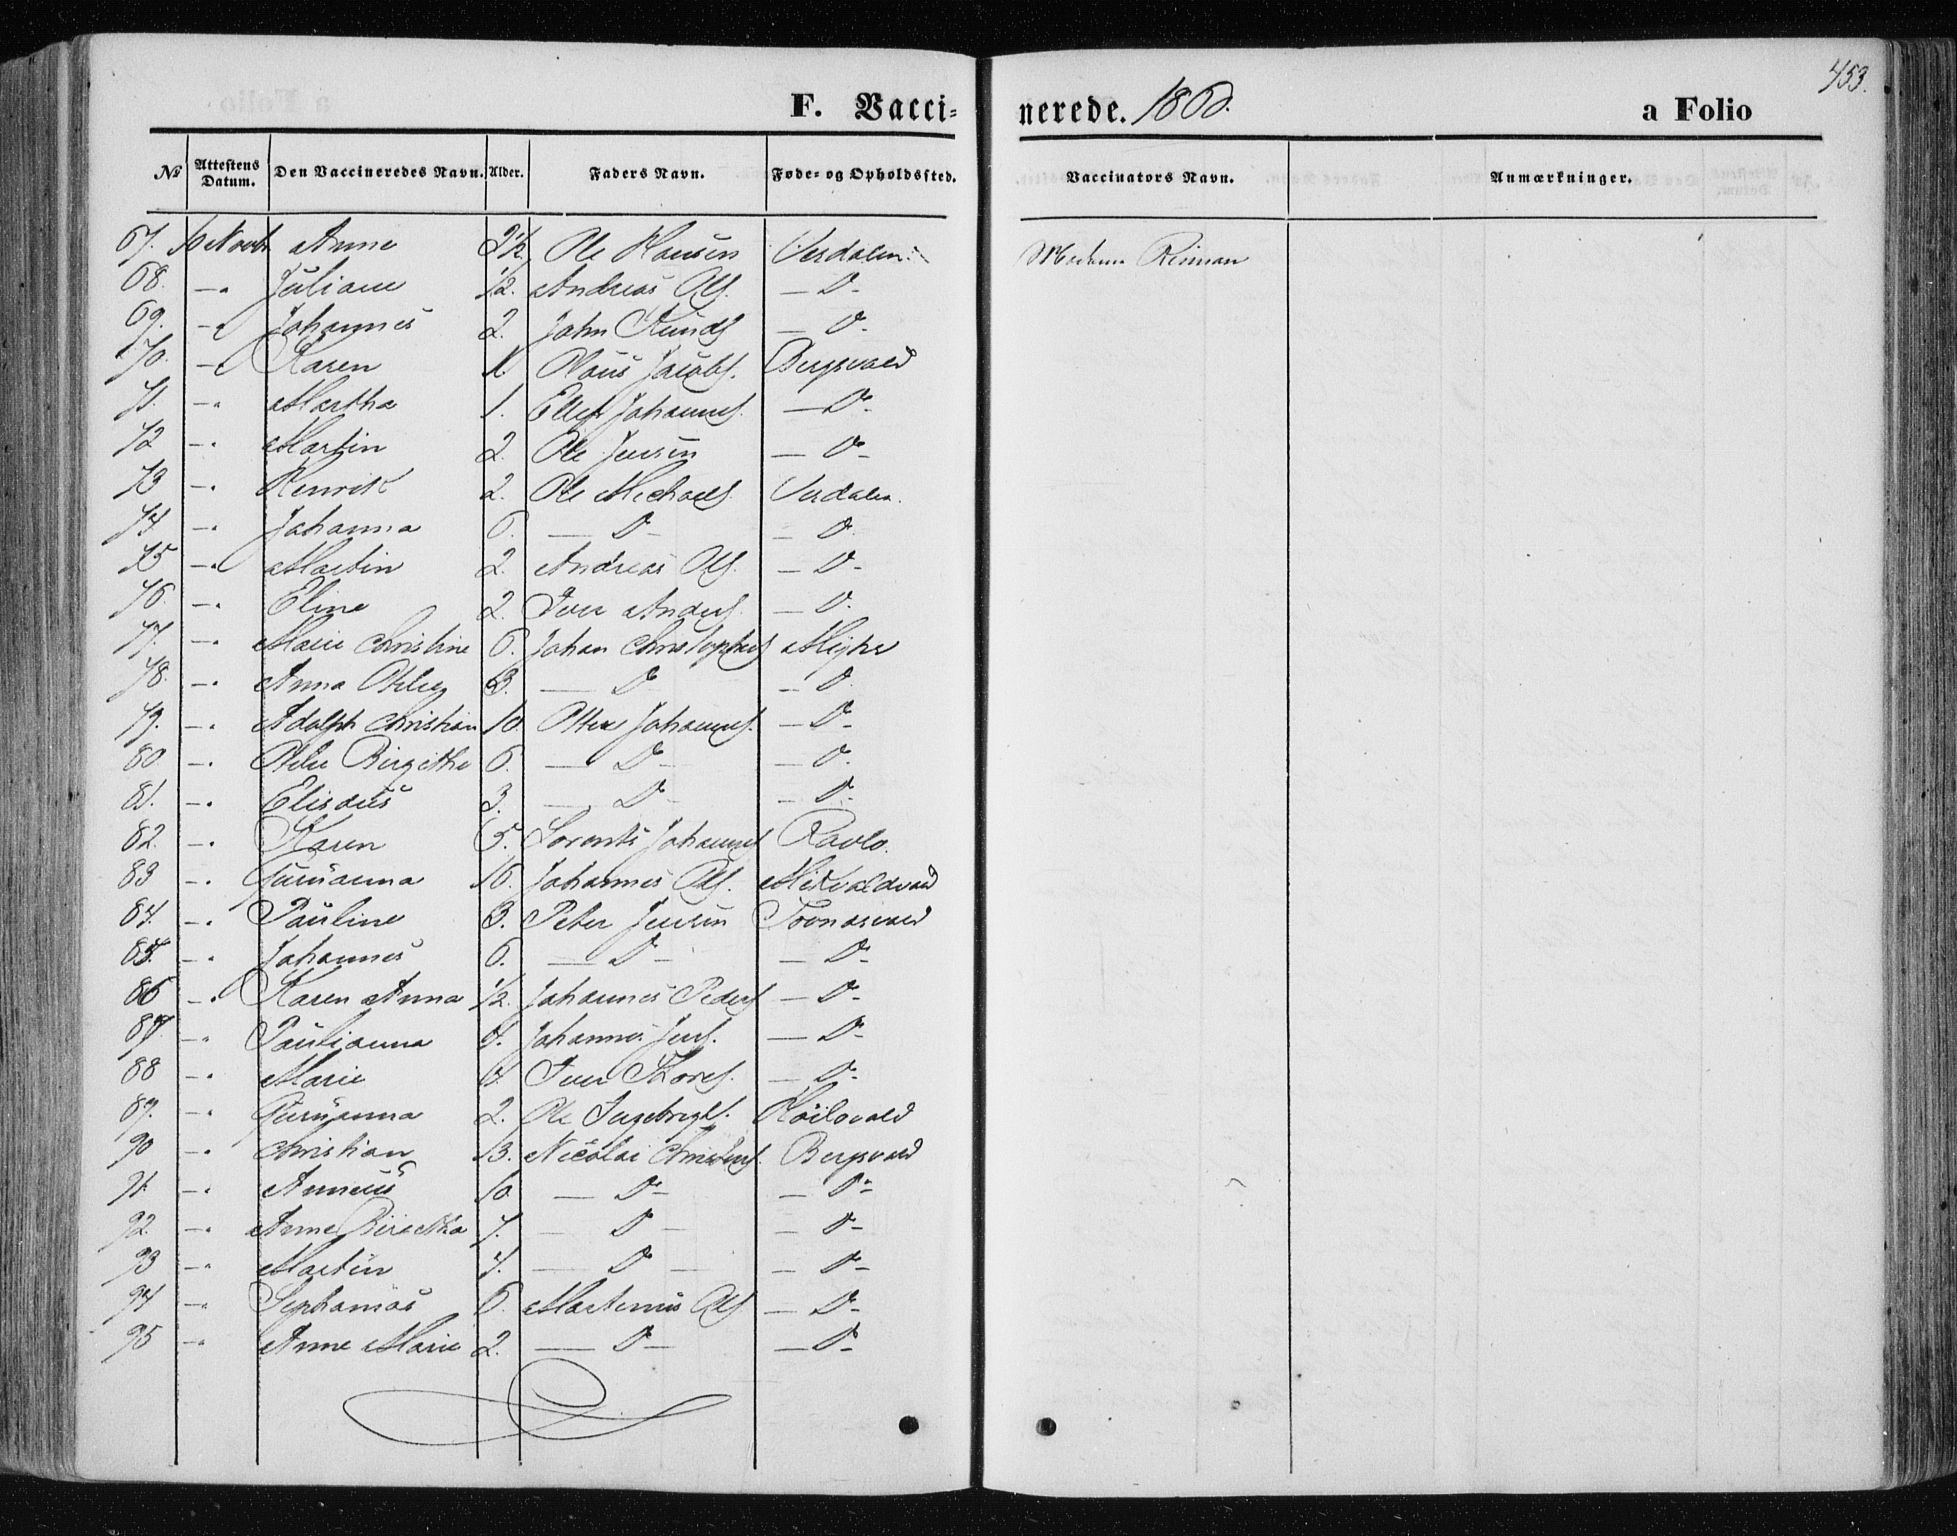 453.
F. Vacci- nerede. 1860. a Folio
No Attestens Datum. Den Vaccineredes Navn. Alder. Faders Navn. Føde- og Opholdssted. Vaccinators Navn. Anmærkninger.
67. Novbr Anne 2½ Ole Hansen Verdalen. Madam Rinnan
68. -" Juliane ½. Andreas Ols. — D-
69. -" Johannes 2. John — D-
70. -" Karen Olaus Jacobs. Bergsvald
71. -" Martha 1. Ellef Johannes. — D-
72 -" Martin 2. Ole Jensen — D-
73 -" Henrik 2. Ole Michaels. Verdalen.
74 -" Johanna 6. — D- — D.
75 -" Martin 2. Andreas Ols. — D-
76. -" Eline 2. Iver Anders. — D.
77. -" Marie Christine 6. Johan Christophers
78. -" Anna 3. — D — D.
79. -" Adolph Christian 10. Johannes. — D-
80 -" Birgitha 6. — D- — D-
81. -" Elisæus 3. — D- — D-
82. -" Karen 5. Lorents Johannes Ravlo.
83 -" Gurianna 10. Johannes Ols.
84. -" Pauline 3. Peter Jensen
85. -" Johannes 6. — D- — D-
86 -" Karen Anna ½. Johannes Peders — D-
87. -" Paulianna Johannes Jens. — D-
88 -" Marie Iver — D-
89. -" Gurianna 2. Ole Ingebrigts.
90 -" Christian 13. Nicolai Bergsvald
91. -" Anneus 10. — D- — D-
92. -" Anne 7. — D — — D-
93 -" Martin 4. — D — — D-
94 -" 6. Martinus Ols — D-
95 -" Anne Marie 2. — D- — D-